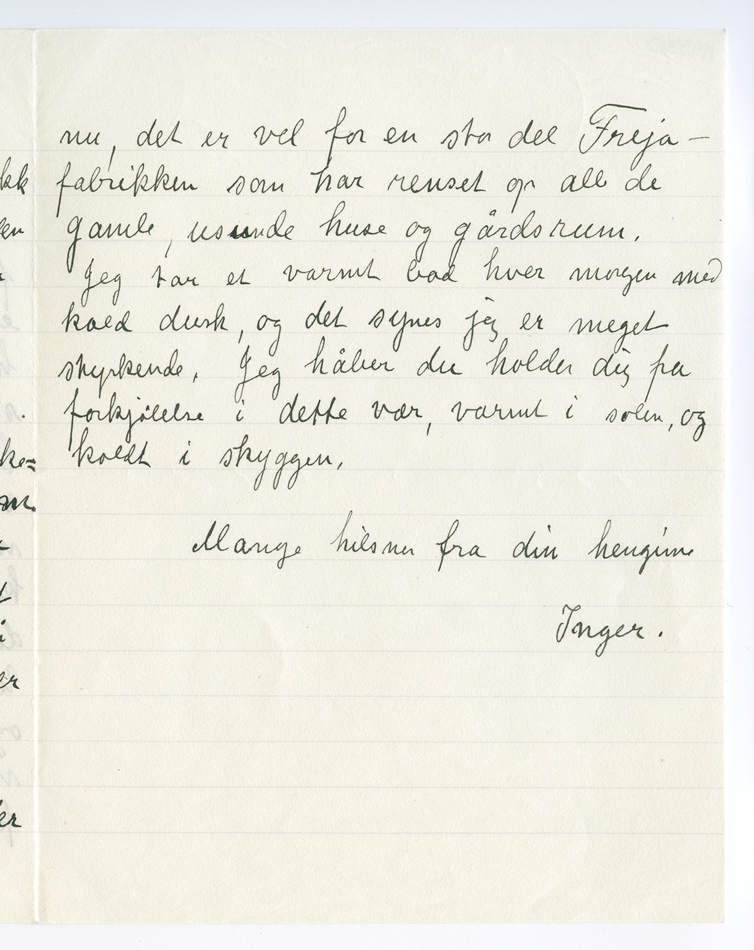 nu, det er vel for en stor del Freja-
fabrikken som har renset op all de
gamle, usunde huse og gårdsrum.
Jeg tar et varmt bad hver morgen med
kold dusk, og det synes jeg er meget
styrkende. Jeg håber du holder dig fra
forkjølelse i dette vær, varmt i solen, og
koldt i skyggen.
Mange hilsner fra din hengivne
Inger.